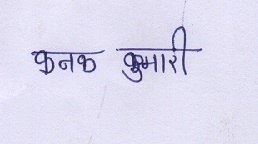 कनक कुमारी